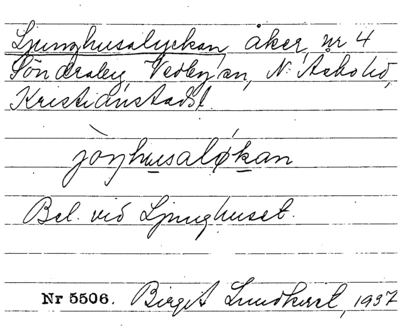 Ljunghusalyckan, åker, nr 4
Söndraby, Vedby sn, N. Åsbo hd,
Kristianstads l.
jòŋhusaløkan
Bel. vid Ljunghuset.
Nr 5506. Birgit Lundkvist, 1937